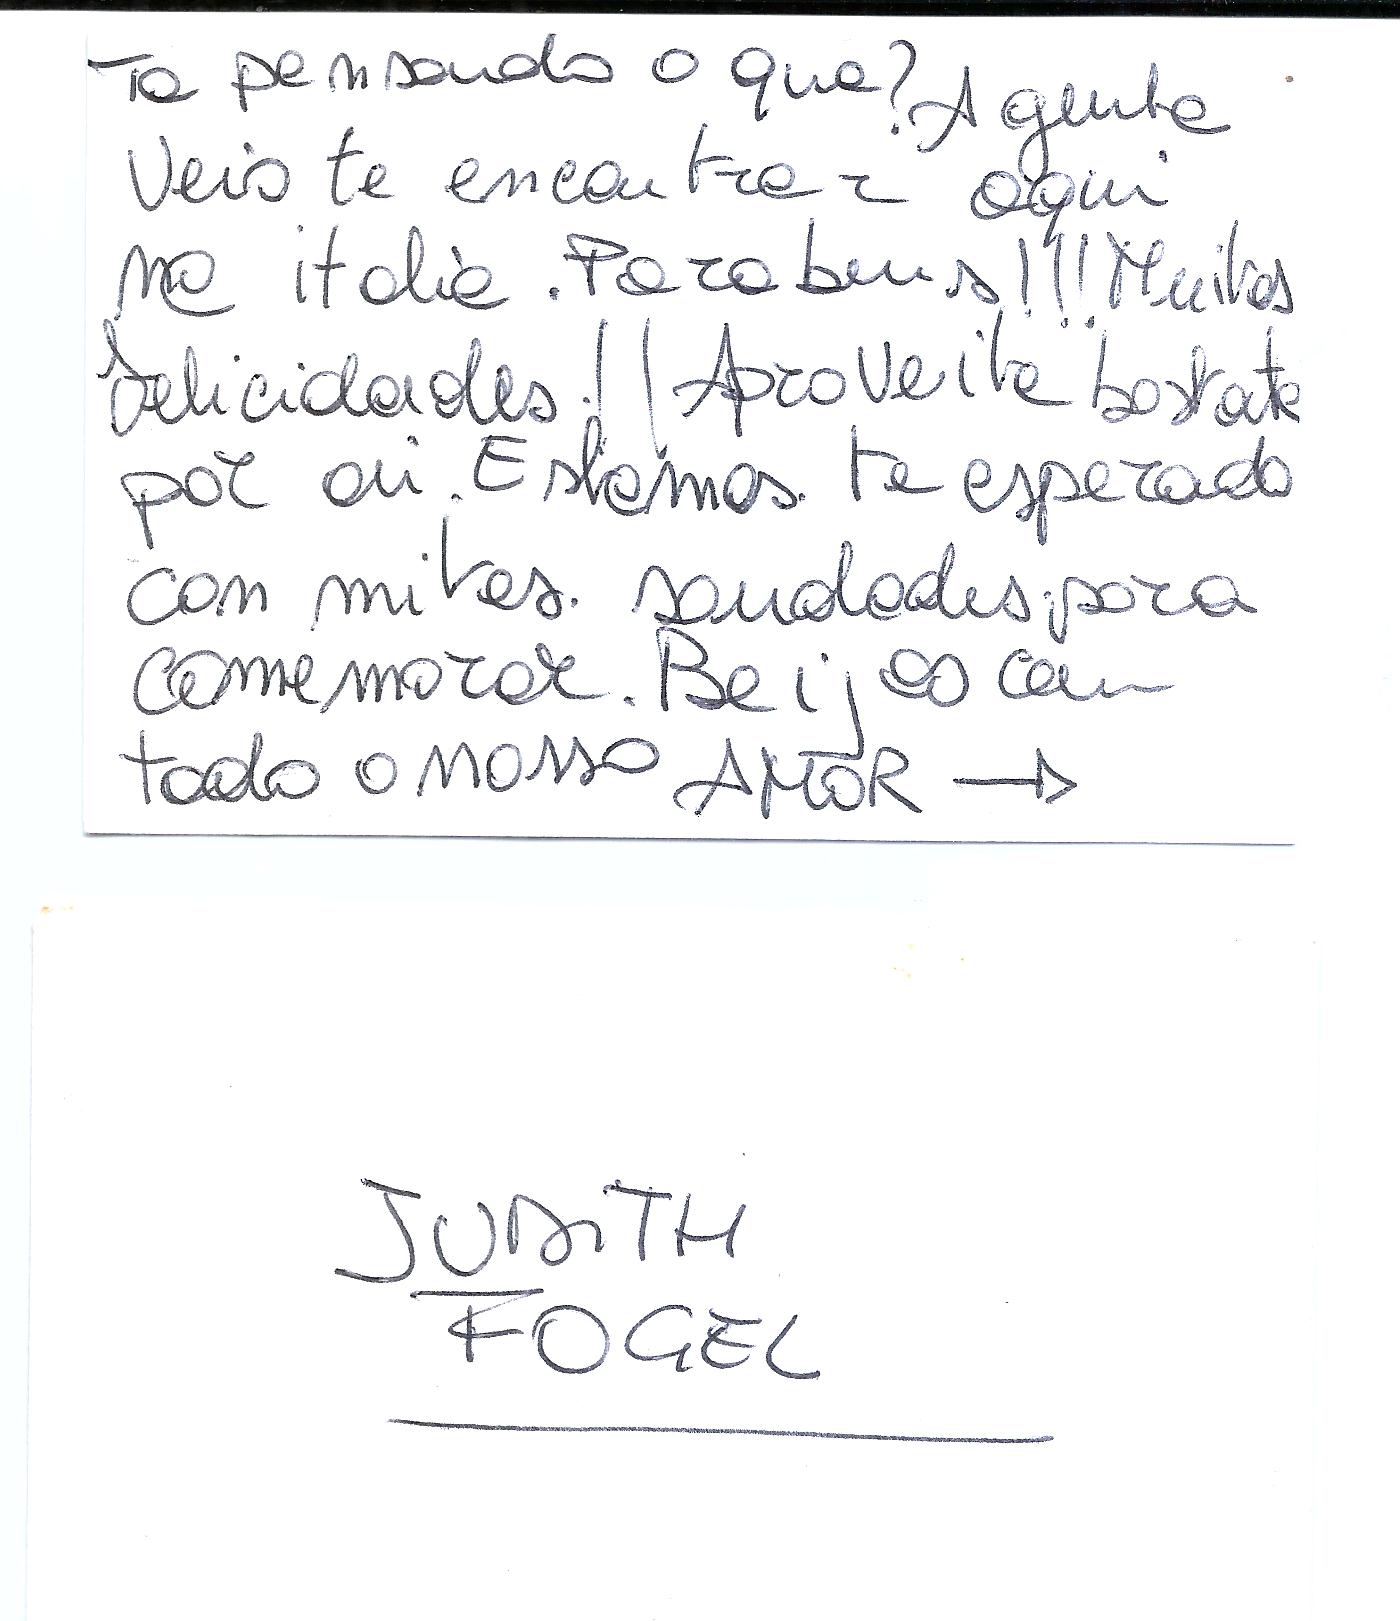 Ta pensando o que? A gente
Veio te encontrar aqui
na italia. Parabens!!! Muitas
felicidades!! Aproveite bastante
por ai. Estamos te esperado
con mitas saudades para
comemorar. Beijos com
todo o nosso AMOR →
JUDiTH
FOGEL